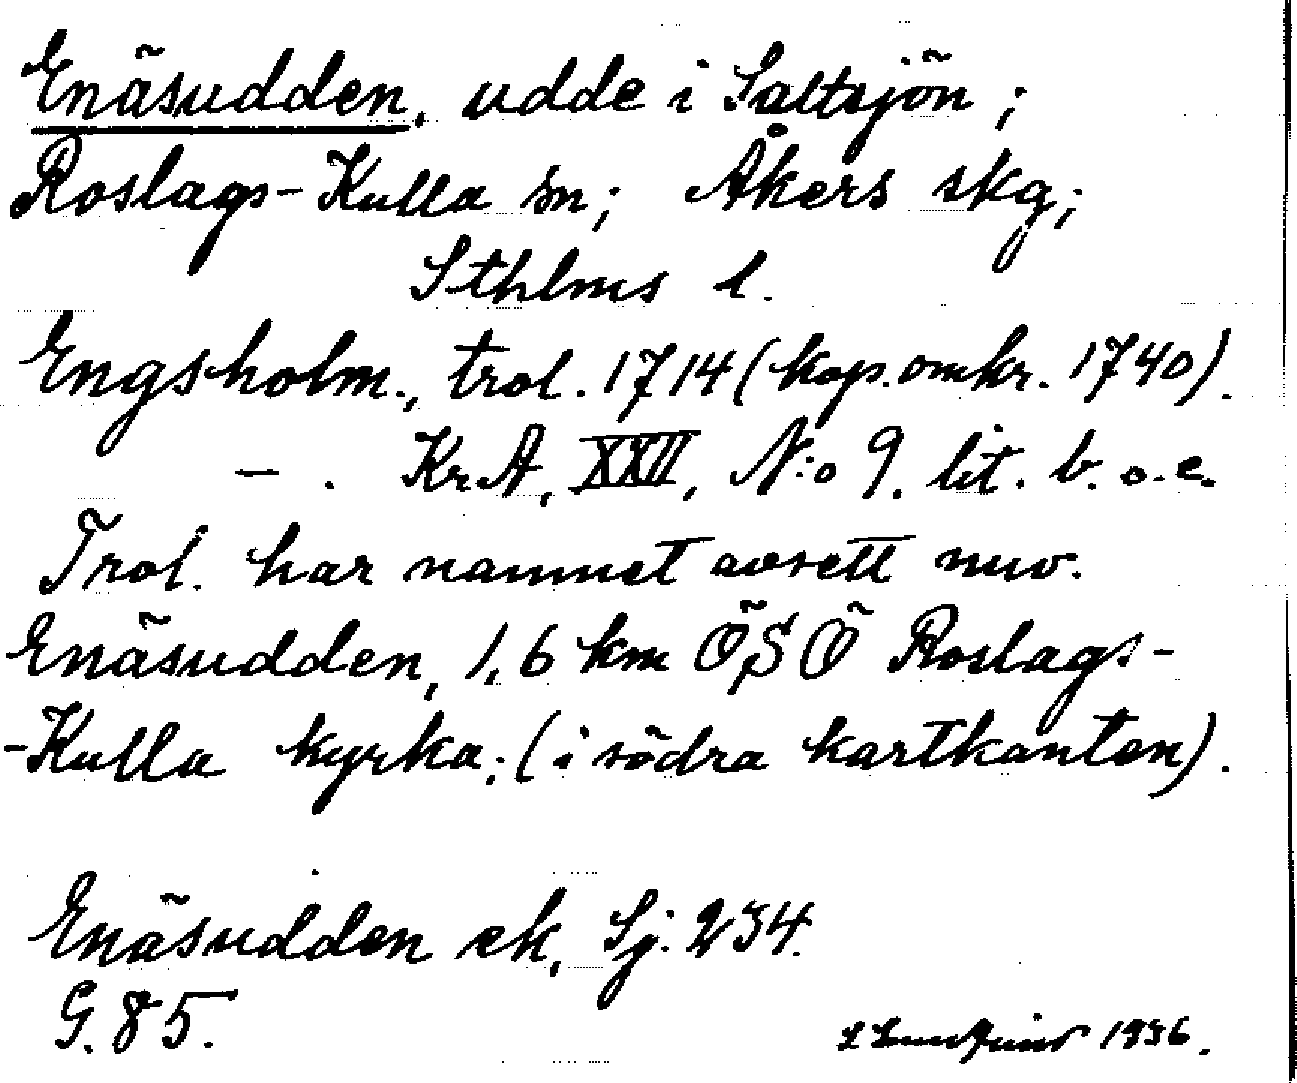 Enäsudden, udde i Saltsjön;
Roslags-Kulla sn; Åkers skg;
Sthlms l.
Engsholm., trol. 1714 (kop. omkr. 1740).
— . Kr. A, XXII, N:o 9. lit. b. o. c.
Trol. har namnet avsett nuv.
Enäsudden, 1,6 km ÖSÖ Roslags-
-Kulla kyrka; (i södra kartkanten).
Enäsudden ek, Sj. 234.
G. 85.
1936.